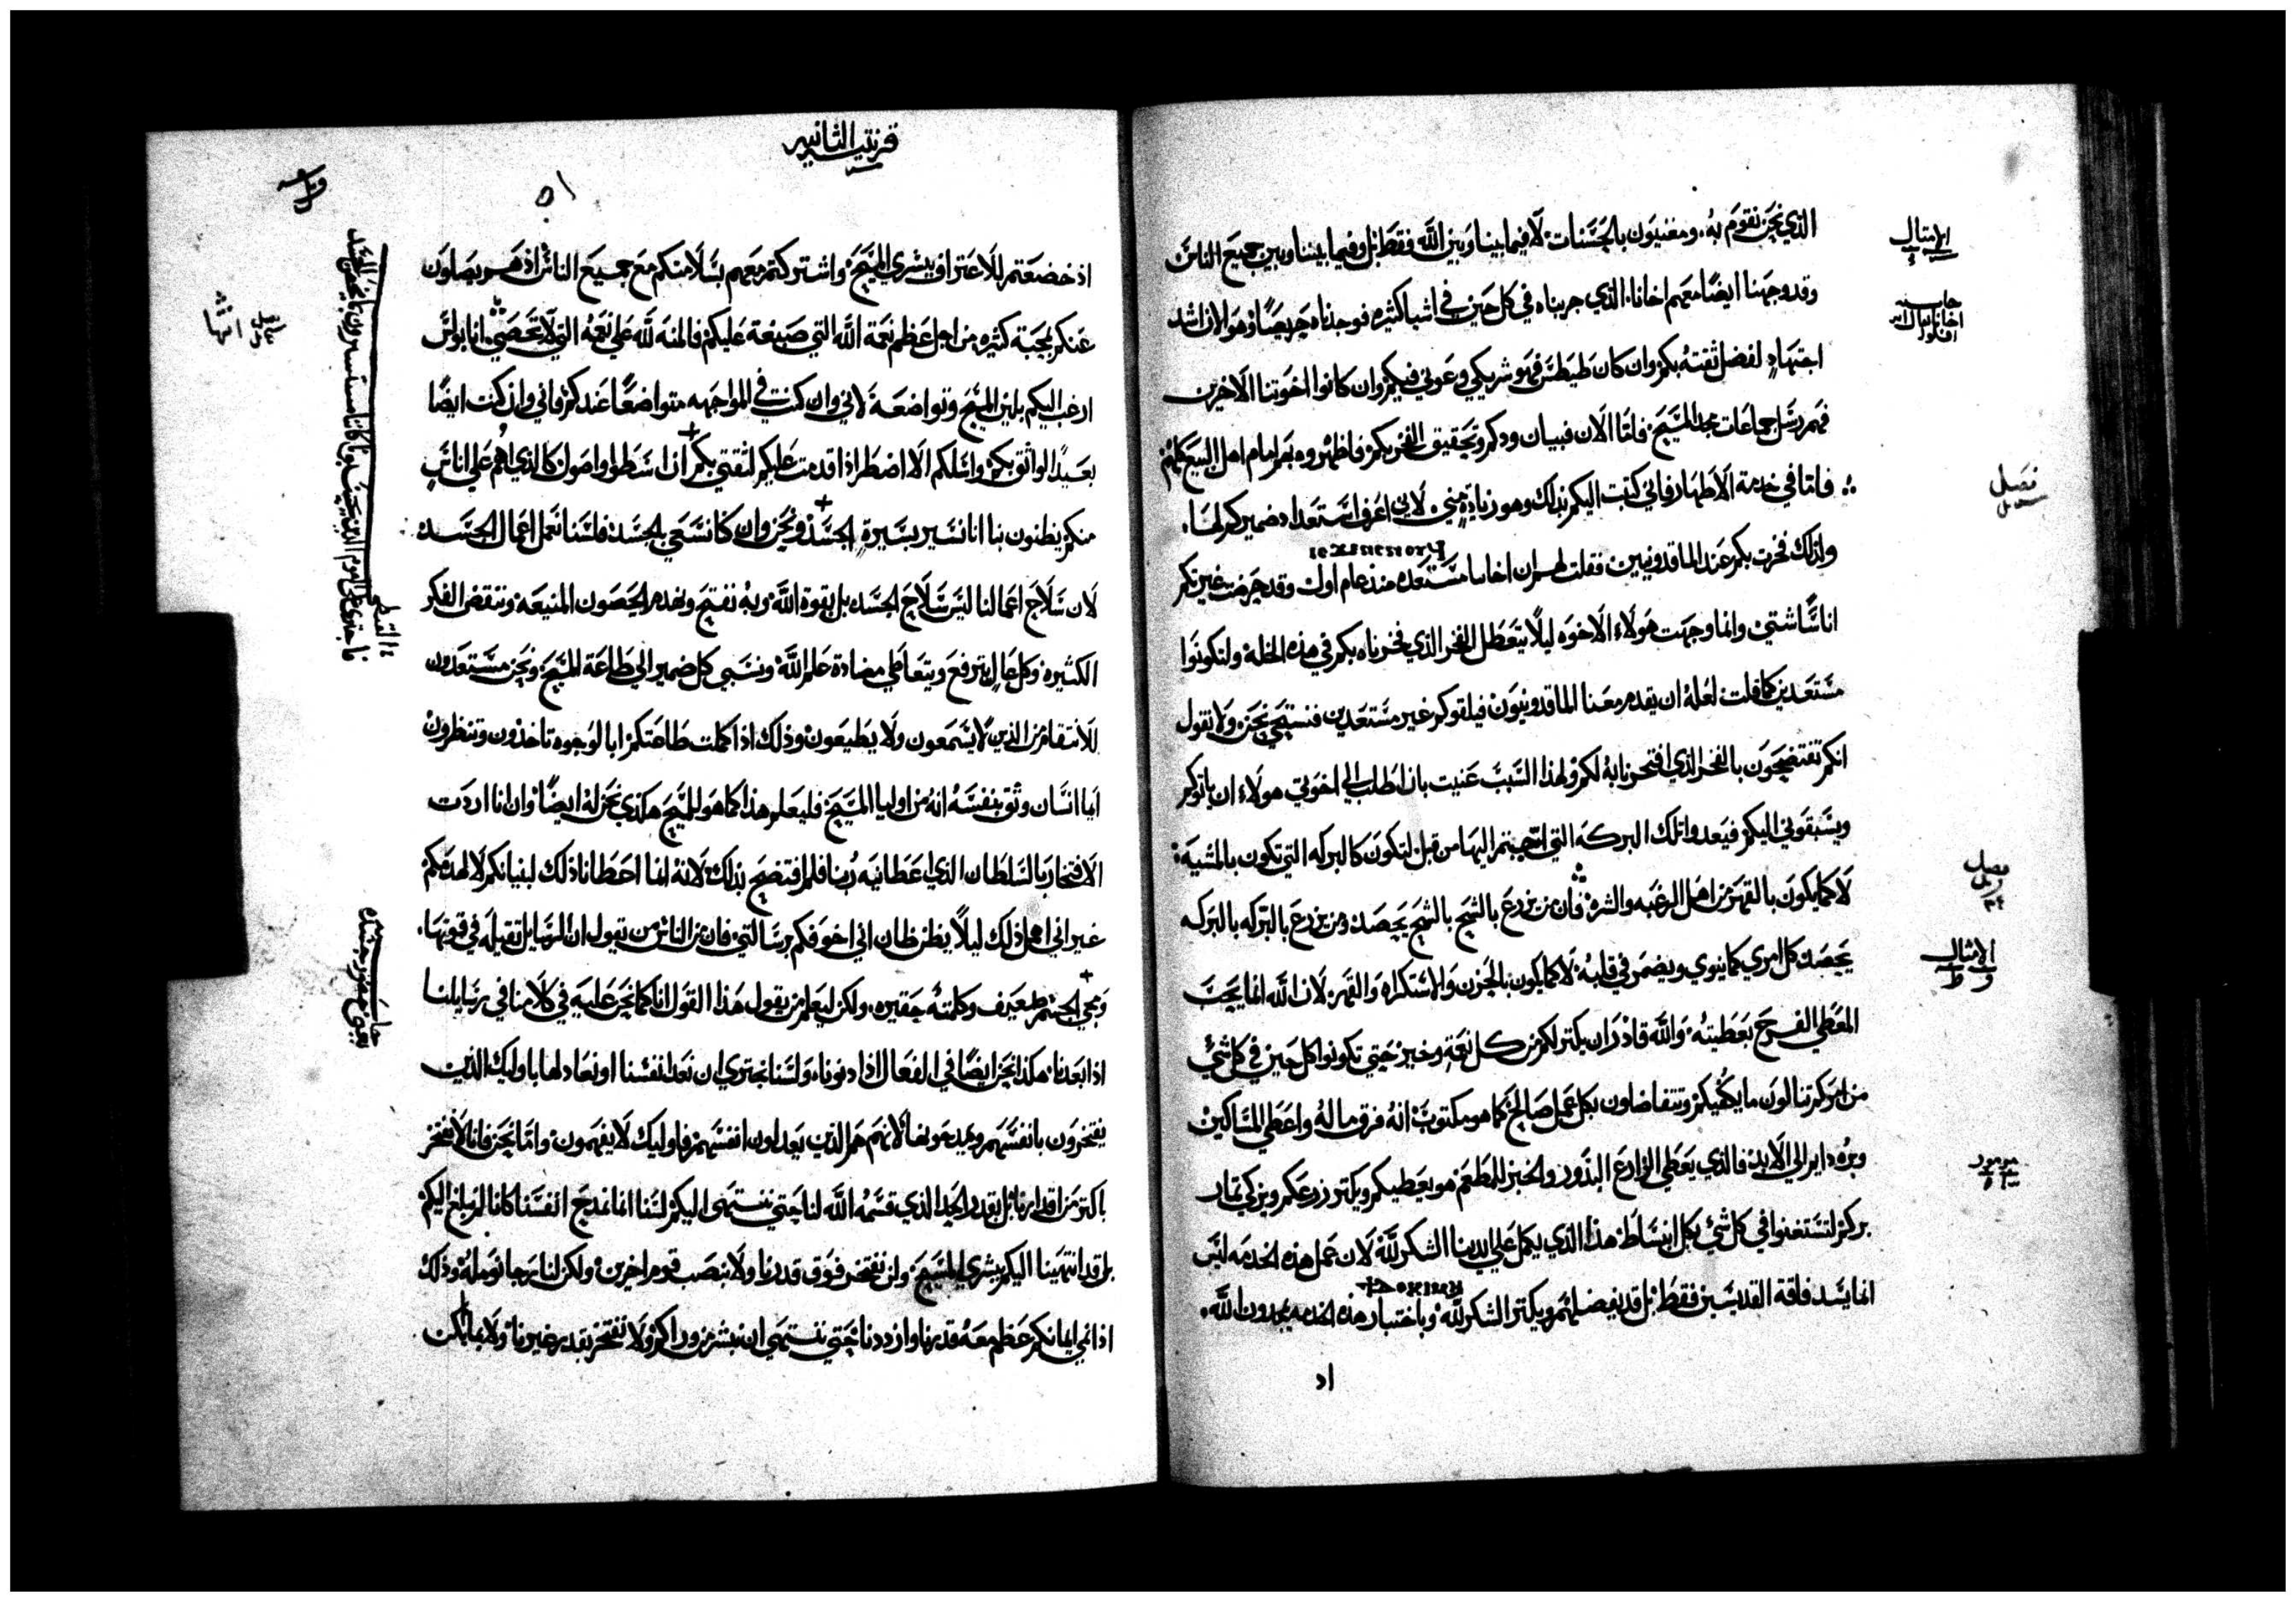 الامثال
حاشيه
الذي نحن نقوم به. ومعنيون بالحسنات لا فيما بيننا وبين الله فقط بل وفيما بيننا وبين جميع الناس
وقد وجهنا ايضا معهم اخانا الذي جربناه في كل حين في اشيا كثيره فوجدناه حريصا وهو الان اشد
اجتهادا لفضل ثقته بكم وان كان طيطس فهو شريكي وعوني فيكم وان كانوا اخوتنا الاخرين
فهم رسل جماعات مجد المسيح فاما الان فبيان ودكم وتحقيق الفخر بكم فاظهروه بهم امام اهل البيع كلهم
فصل
فاما في خدمة الاطهار فاني كتبت اليكم بذلك وهو زيادة مني لاني اعرف استعداد ضميركم لها.
ولذلك فخرت بكم عند الماقدونيين فقلت لهم ان اخاىا مستعده منذ عام اول وقد حرصت غيرتكم
اناسا شتي وانما وجهت هولاء الاخوه ليلا يتعطل الفخر الذي فخرناه بكم في هذه الخلة ولتكونوا
مستعدين كما قلت لعله ان يقدم معنا الماقدونيون فيلقوكم غير مستعدين فنستحي نحن ولا نقول
انكم تفتضحون بالفخر الذي افتخرنا به لكم ولهذا السبب عنيت بان اطلب الي اخوتي هولاء ان ياتوكم
ويسبقوني اليكم فيعدوا تلك البركه التي اجبتم اليها من قبل لتكون كالبركه التي تكون بالمشيه
فصل
لا كما يكون بالقهر من اهل الرغبه والشره فان من يزرع بالشح بالشح يحصد ومن يزرع بالبركه بالبركه
الامثال
يحصد كل امري كما ينوي ويضمر في قلبه لا كما يكون بالحزن والاستكراه والقهر لان الله انما يحب
المعطي الفرح بعطيته والله قادر ان يكتر لكم من كل نعمة وخير حتي تكونوا كل حين في كل شي
من امركم تنالون ما يكفيكم وتتفاضلون بكل عمل صالح كما هو مكتوب انه فرق ماله واعطي المساكين
مزمور
وبره داير الي الابد فالذي يعطي الزارع البذور والخبز للمطعم هو يعطيكم ويكتر زرعكم ويزكي تمار
بركم لتستغنوا في كل شي بكل انبساط هذا الذي يكمل علي ايدينا الشكر لله لان عمل هذه الخدمه ليس
انما يسد فاقة القديسين فقط بل قد يفضل لهم ويكتر الشكر لله وباختبار هذه الخدمه يمجدون الله.
قرنتيه الثانيه
اذ خضعتم للاعتراف ببشري المسيح واشتركتم معهم بسلامتكم مع جميع الناس اذ هم يصلون
عنكم بمحبة كثيره من اجل عظم نعمة الله التي صنعة عليكم فالمنه لله علي نعمه التي لا تحصي انا بولس
ارغب اليكم بلين المسيح وتواضعه لاني وان كنت في المواجهه متواضعا عندكم فاني وان كنت ايضا
بعيدا الواثق بكم واسلكم الا اضطر اذا قدمت عليكم لثقتي بكم ان اسطوا واصول كالذي اهم علي اناس
منكم يظنون بنا انا نسير بسيرة الجسد ونحن وان كنا نسعي بالجسد فلسنا نعمل اعمال الجسد
لان سلاح اعمالنا ليس سلاح الجسد بل بقوة الله وبه نفتح ونهدم الحصون المنيعه وننقض الفكر
الكثيره وكل عال يترفع ويتعاطي مضادة علم الله ونسبي كل ضمير الي طاعة المسيح ونحن مستعدون
للانتقام من الذين لا يسمعون ولا يطيعون وذلك اذا كملت طاعتكم ابالوجوه تاخذون وتنظرون
ايما انسان وثق بنفسه انه من اوليا المسيح فليعلم هذا كما هو للمسيح هكذي نحن له ايضا وان انا اردت
الافتخار بالسلطان الذي اعطانيه ربنا فلم افتضح بذلك لانه انما اعطانا ذلك لبنيانكم لا لهدمكم
غير اني اهمل ذلك ليلا يظن ظان اني اخوفكم برسالتي فان من الناس من يقول ان الرسايل تقيله في قوتها.
ومجي الجسم ضعيف وكلمته حقيره. ولكن ليعلم من يقول هذا القول انا كما نحن عليه في كلامنا في رسايلنا
اذا بعدنا هكذا نحن ايضا في الفعال اذا دنونا. ولسنا نجتري ان نعد انفسنا او نعادلها باوليك الذين
يفتخرون بانفسهم ويمدحونها لانهم هم الذين يعدلون انفسهم فاوليك لا يفهمون واما نحن فانا لا نفتخر
باكتر من اقدارنا بل بقدر الحد الذي قسمه الله لنا حتي ننتهي اليكم لسنا انما نمدح انفسنا كانا لم نبلغ اليكم
بل قد انتهينا اليكم ببشري المسيح ولن نفتخر فوق قدرنا ولا بنصب قوم اخرين ولكن لنا رجا نومله وذلك
اذا نمي ايمانكم عظم معه قدرنا وازددنا حتي ننتهي ان نبشر من وراكم ولا نفتخر بقدر غيرنا ولا بما امكن